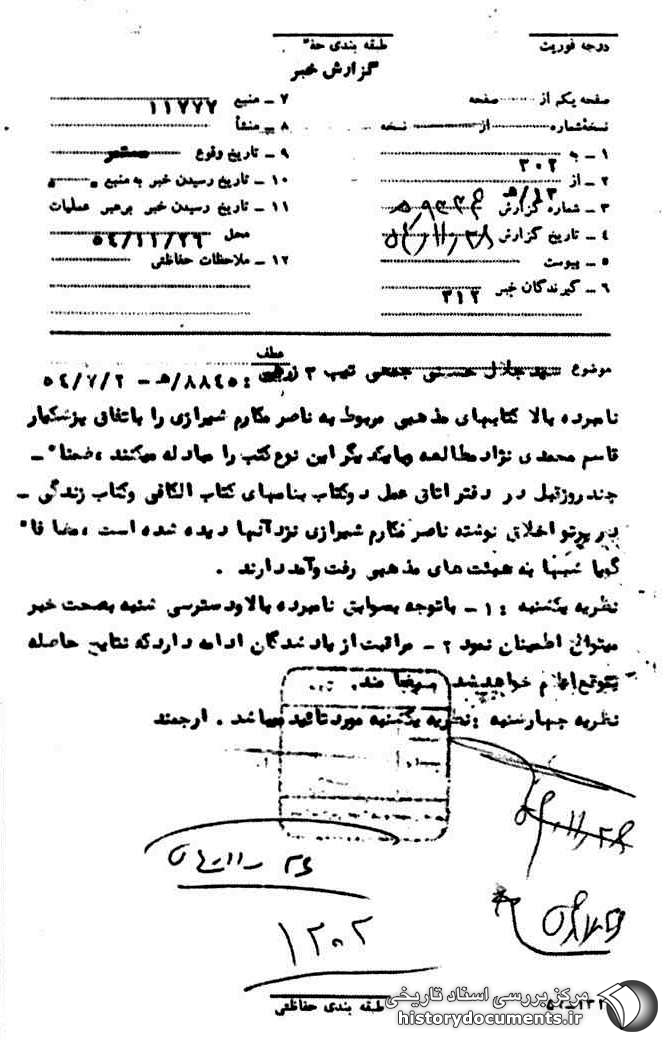 درجه فوریت
طبقه بندی حفا
گزارش خبر
صفحه یکم از صفحه
نسخه شماره از نسخه
۱ ـ به ۳۰۲
۲ ـ از ۱۳/ه‍
۳ ـ شماره گزارش
۴ ـ تاریخ گزارش ۵۴/۱۱/۲۸
۵ ـ پیوست
۶ ـ گیرندگان خبر ۳۱۲
۷ ـ منبع ۱۱۷۷۷
۸ ـ منشأ
۹ ـ تاریخ وقوع مستمر
۱۰ ـ تاریخ رسیدن خبر به منبع
۱۱ ـ تاریخ رسیدن خبر برهبر عملیات
محل ۵۴/۱۱/۲۶
۱۲ ـ ملاحظات حفاظتی
عطف
موضوع سید جلال حسنی جمعی تیپ ۲ : ۸۸۴۵/ه‍ ـ ۵۴/۷/۲
نامبرده بالا کتابهای مذهبی مربوط به ناصر مکارم شیرازی را باتفاق پزشکیار
قاسم محمدی نژاد مطالعه وبایکدیگر این نوع کتب را مبادله میکنند ، ضمنا" ـ
چند روز قبل در دفتر اتاق عمل دوکتاب بنامهای کتاب الکافی وکتاب زندگی ـ
در پرتو اخلاق نوشته ناصر مکارم شیرازی نزد آنها دیده شده است ، مضافا"
گویا شبها به هیئت های مذهبی رفت وآمد دارند .
نظریه یکشنبه : ۱ ـ باتوجه بسوابق نامبرده بالا ودسترسی شنبه بصحت خبر
میتوان اطمینان نمود ۲ ـ مراقبت از یادشدگان ادامه دارد که نتایج حاصله
بموقع اعلام خواهد شد
نظریه چهارشنبه : نظریه یکشنبه مورد تائید میباشد . ارجمند
۵۴/۱۱/۲۸
۵۴/۱۱/۲۶
۱۲۰۲
طبقه بندی حفاظتی
مرکز بررسی اسناد تاریخی
historydocuments.ir